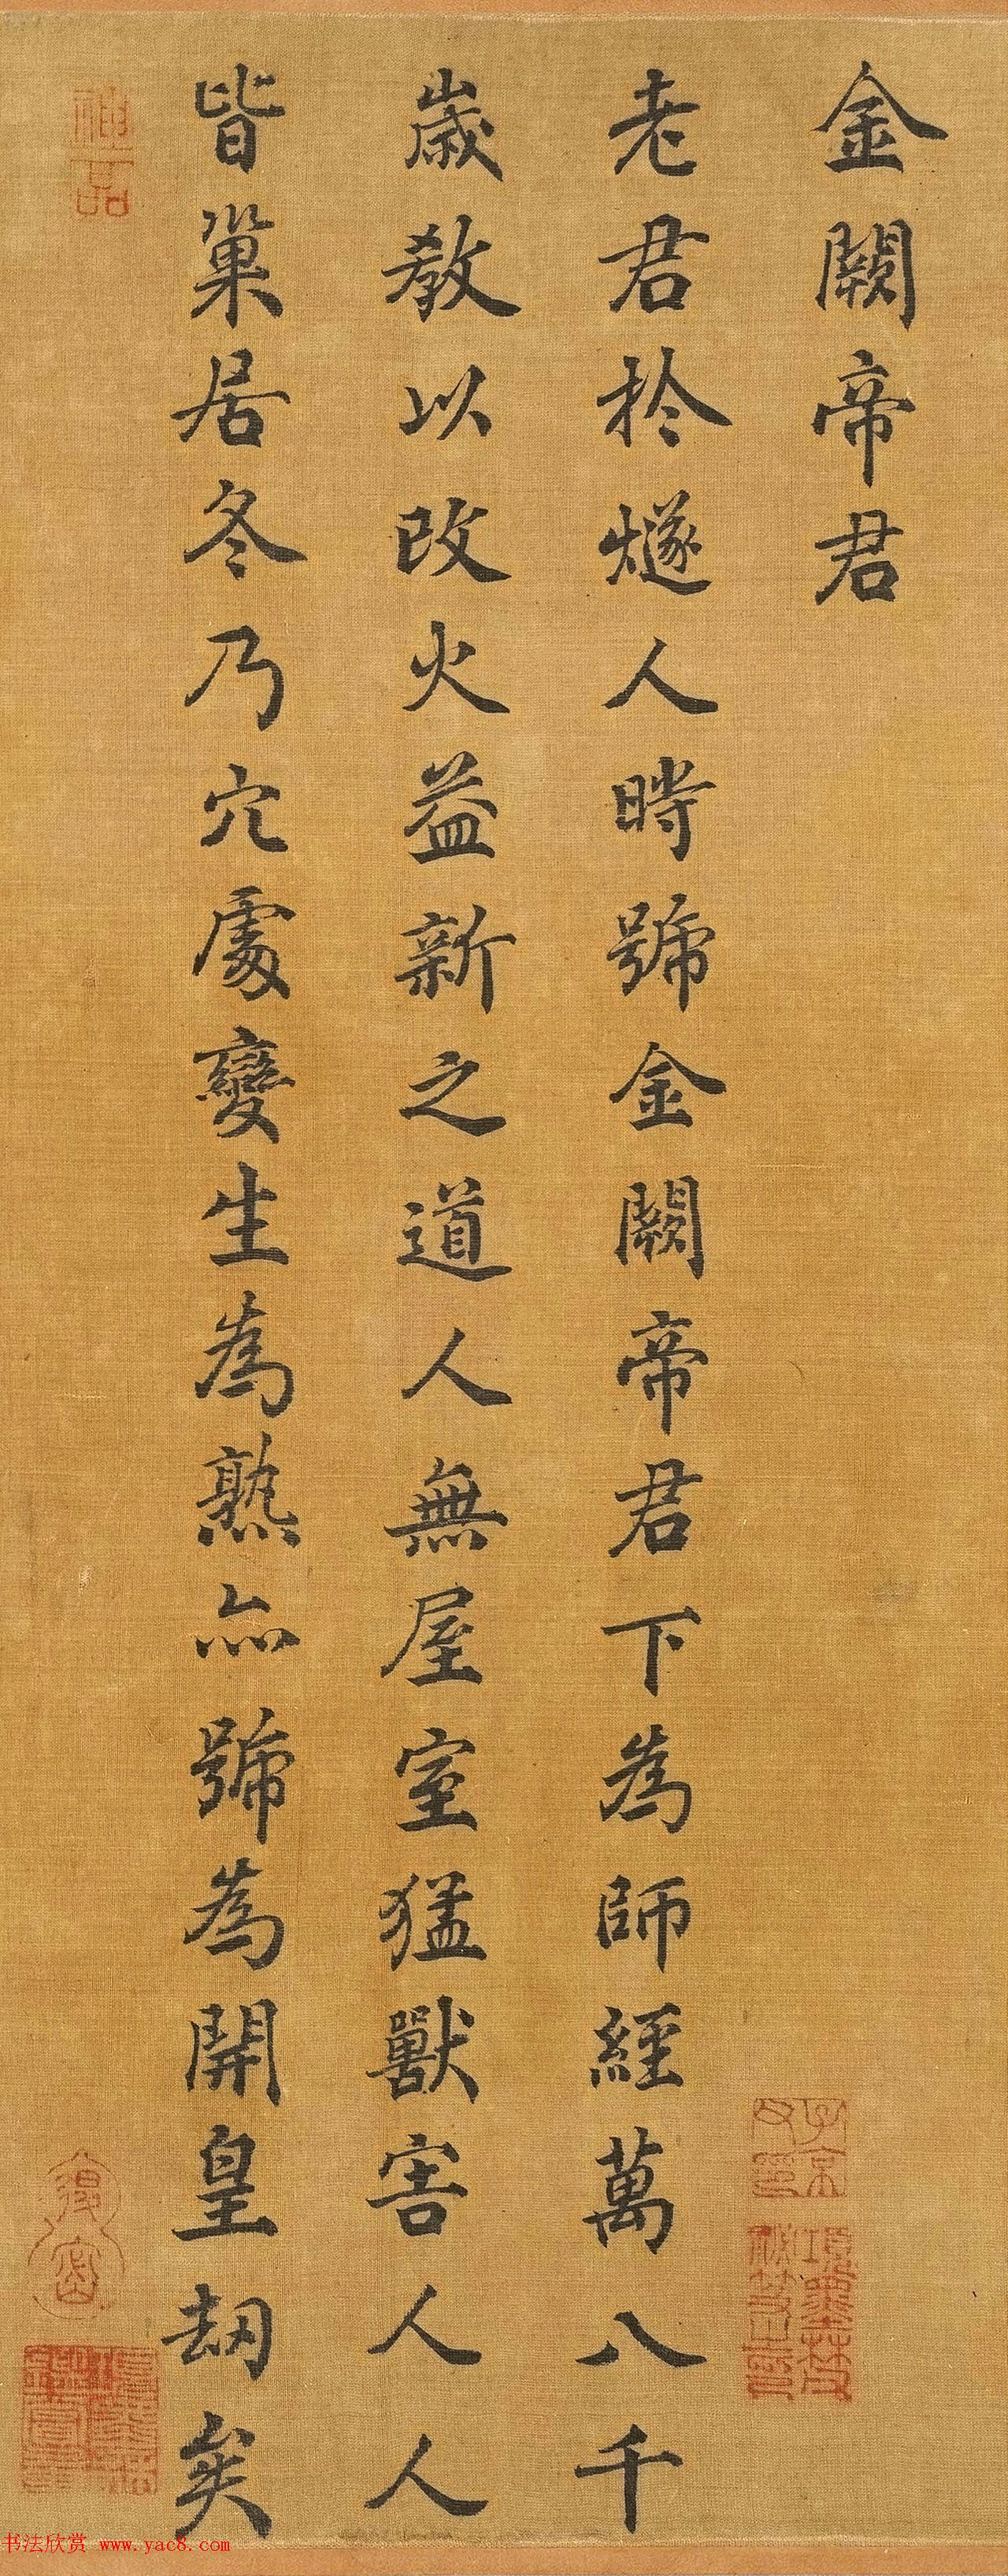 金闕帝君
老君於燧人時號金闕帝君下為師經萬八千
歲教以改火益新之道人無屋室猛獸害人人
皆巢居冬乃穴處變生為熟亦號為開皇劫矣
神品
子京父印
項墨林秘笈之印
书法欣赏 www.yac8.com